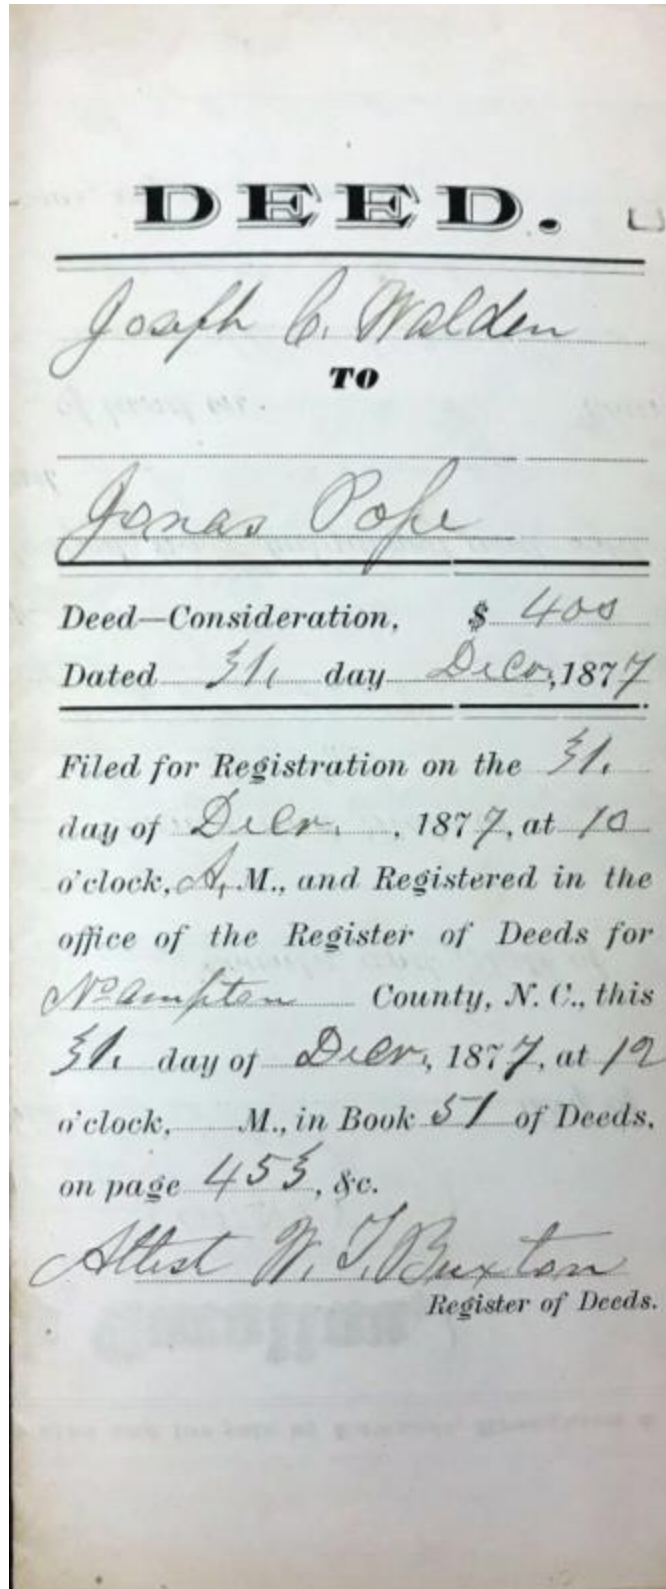 DEED.
Joseph C. Walden
TO
Jonas Pope
Deed—Consideration, $ 400
Dated 31, day Decr, 1877
Filed for Registration on the 31,
day of Decr. , 1877, at 10
o'clock, A, M., and Registered in the
office of the Register of Deeds for
No ampton County, N. C., this
31. day of Decr, 1877, at 12
o'clock, M., in Book 51 of Deeds,
on page 453, &c.
Attest W. T. Buxton
Register of Deeds.